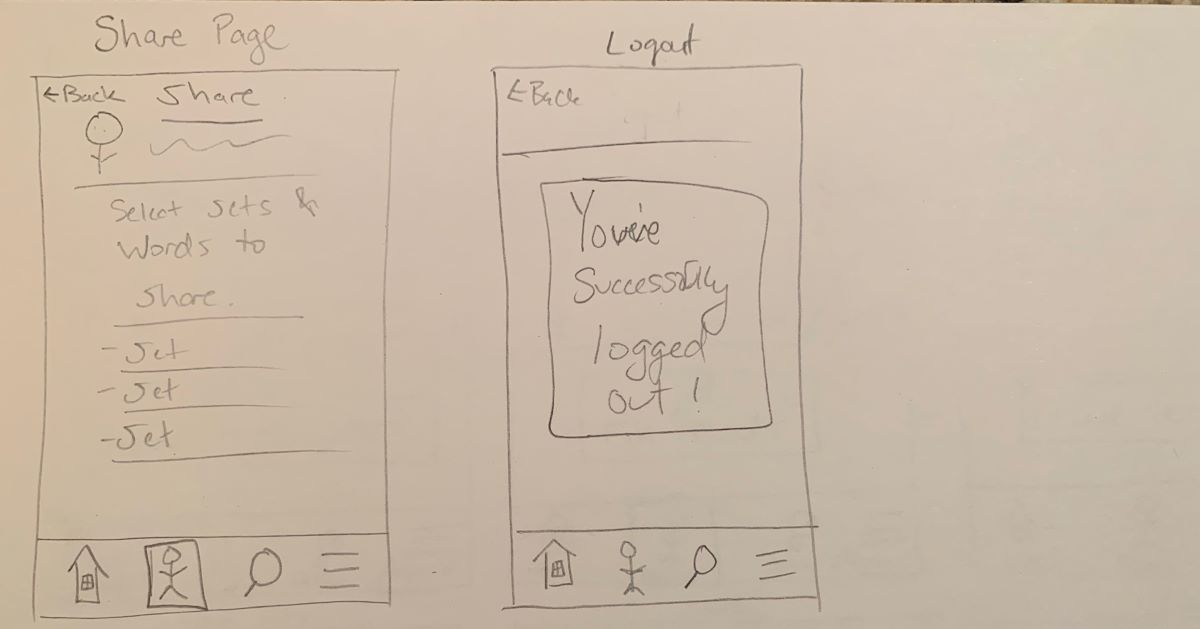 Share Page
←Back Share
Select sets &
words to
share.
- Set
- Set
- Set
Logout
←Back
You're
Successfully
logged
out!